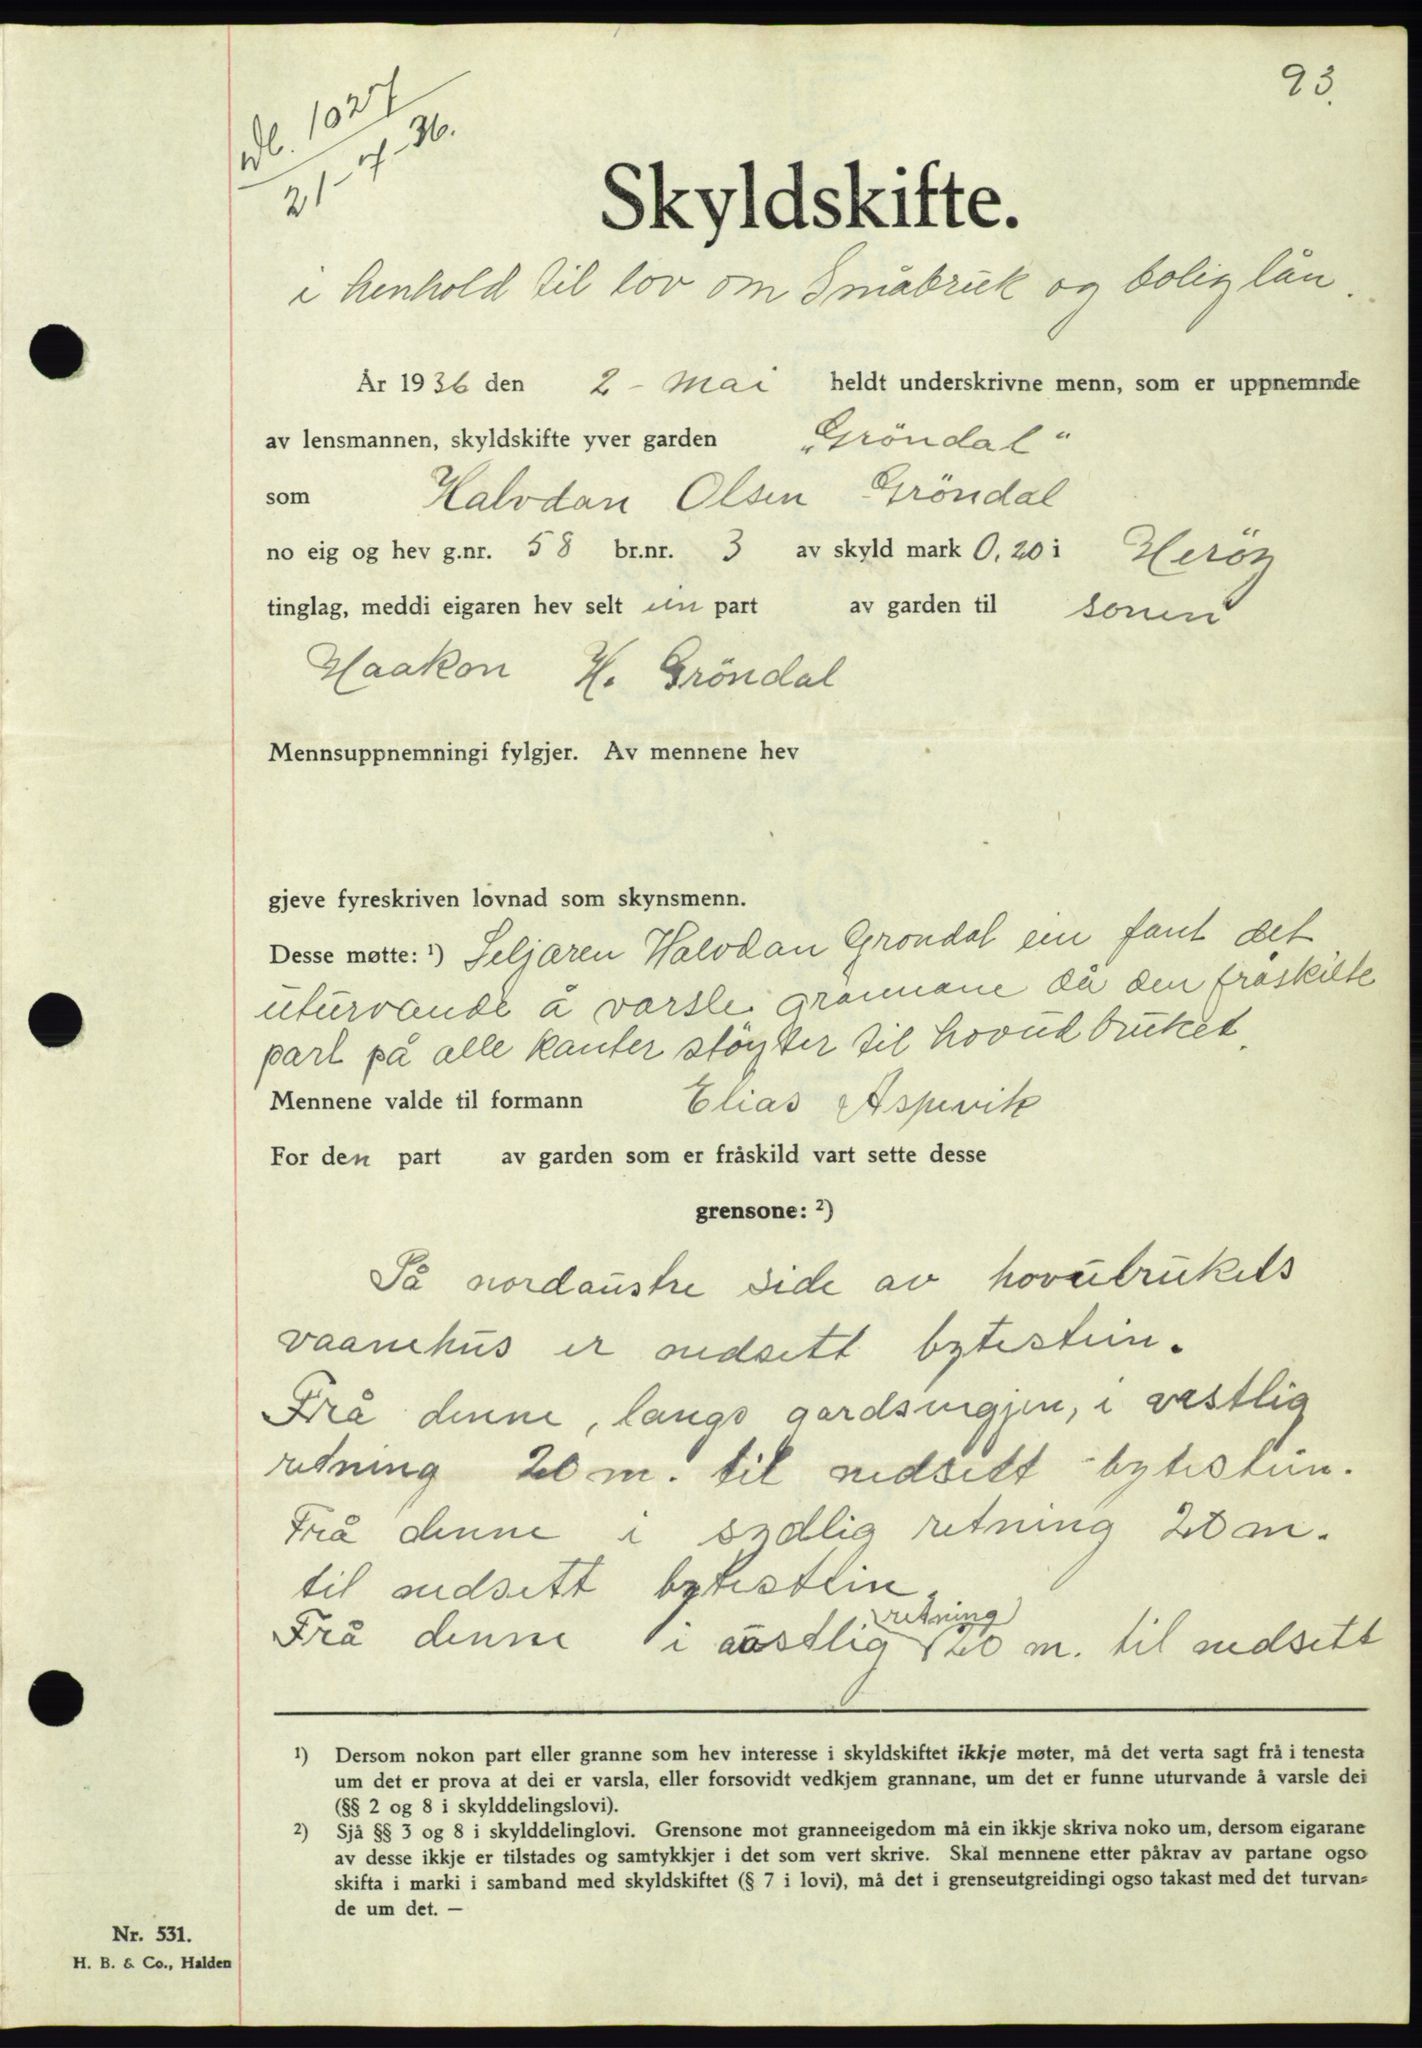 93.
Db. 1027
21-7-36.
Skyldskifte.
i henhold til lov om Småbruk og boliglån.
År 1936 den 2-mai heldt underskrivne menn, som er uppnemnde
av lensmannen, skyldskifte yver garden „Gröndal“
som Halvdan Olsen Gröndal
no eig og hev g.nr. 58 br.nr. 3 av skyld mark 0,20 i Heröy
tinglag, meddi eigaren hev selt ein part av garden til sonen
Haakon H. Gröndal
Mennsuppnemningi fylgjer. Av mennene hev
gjeve fyreskriven lovnad som skynsmenn.
Desse møtte: ¹) Seljaren Halvdan Grondal ein fant det
uturvande å varsle grannane då den fråskilte
part på alle kanter stöyter til hovudbruket.
Mennene valde til formann Elias Aspevik
For den part av garden som er fråskild vart sette desse
grensone: ²)
På nordaustre side av hovubrukets
vaanehus er nedsett bytestein.
Frå denne, langs gardsvegjen, i vestlig
retning 20 m. til nedsett bytestein.
Frå denne i sydlig retning 20 m.
til nedsett bytestein.
Frå denne i austlig retning 20 m. til nedsett
¹) Dersom nokon part eller granne som hev interesse i skyldskiftet ikkje møter, må det verta sagt frå i tenesta
um det er prova at dei er varsla, eller forsovidt vedkjem grannane, um det er funne uturvande å varsle dei
(§§ 2 og 8 i skylddelingslovi).
²) Sjå §§ 3 og 8 i skylddelinglovi. Grensone mot granneeigedom må ein ikkje skriva noko um, dersom eigarane
av desse ikkje er tilstades og samtykkjer i det som vert skrive. Skal mennene etter påkrav av partane ogso
skifta i marki i samband med skyldskiftet (§ 7 i lovi), må det i grenseutgreidingi ogso takast med det turvan-
de um det. —
Nr. 531.
H. B. & Co., Halden